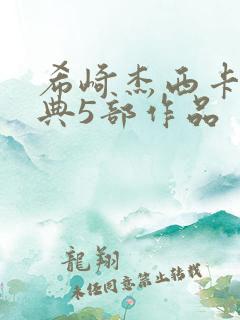 希崎杰西卡
典5部作品
龍翔
未任同意禁止转载